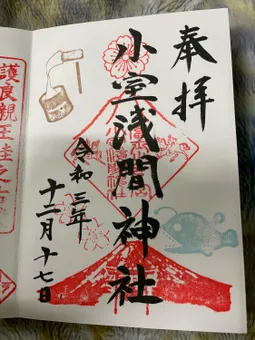 奉拝
小室浅間神社
令和三年
十二月十七日
護良親王